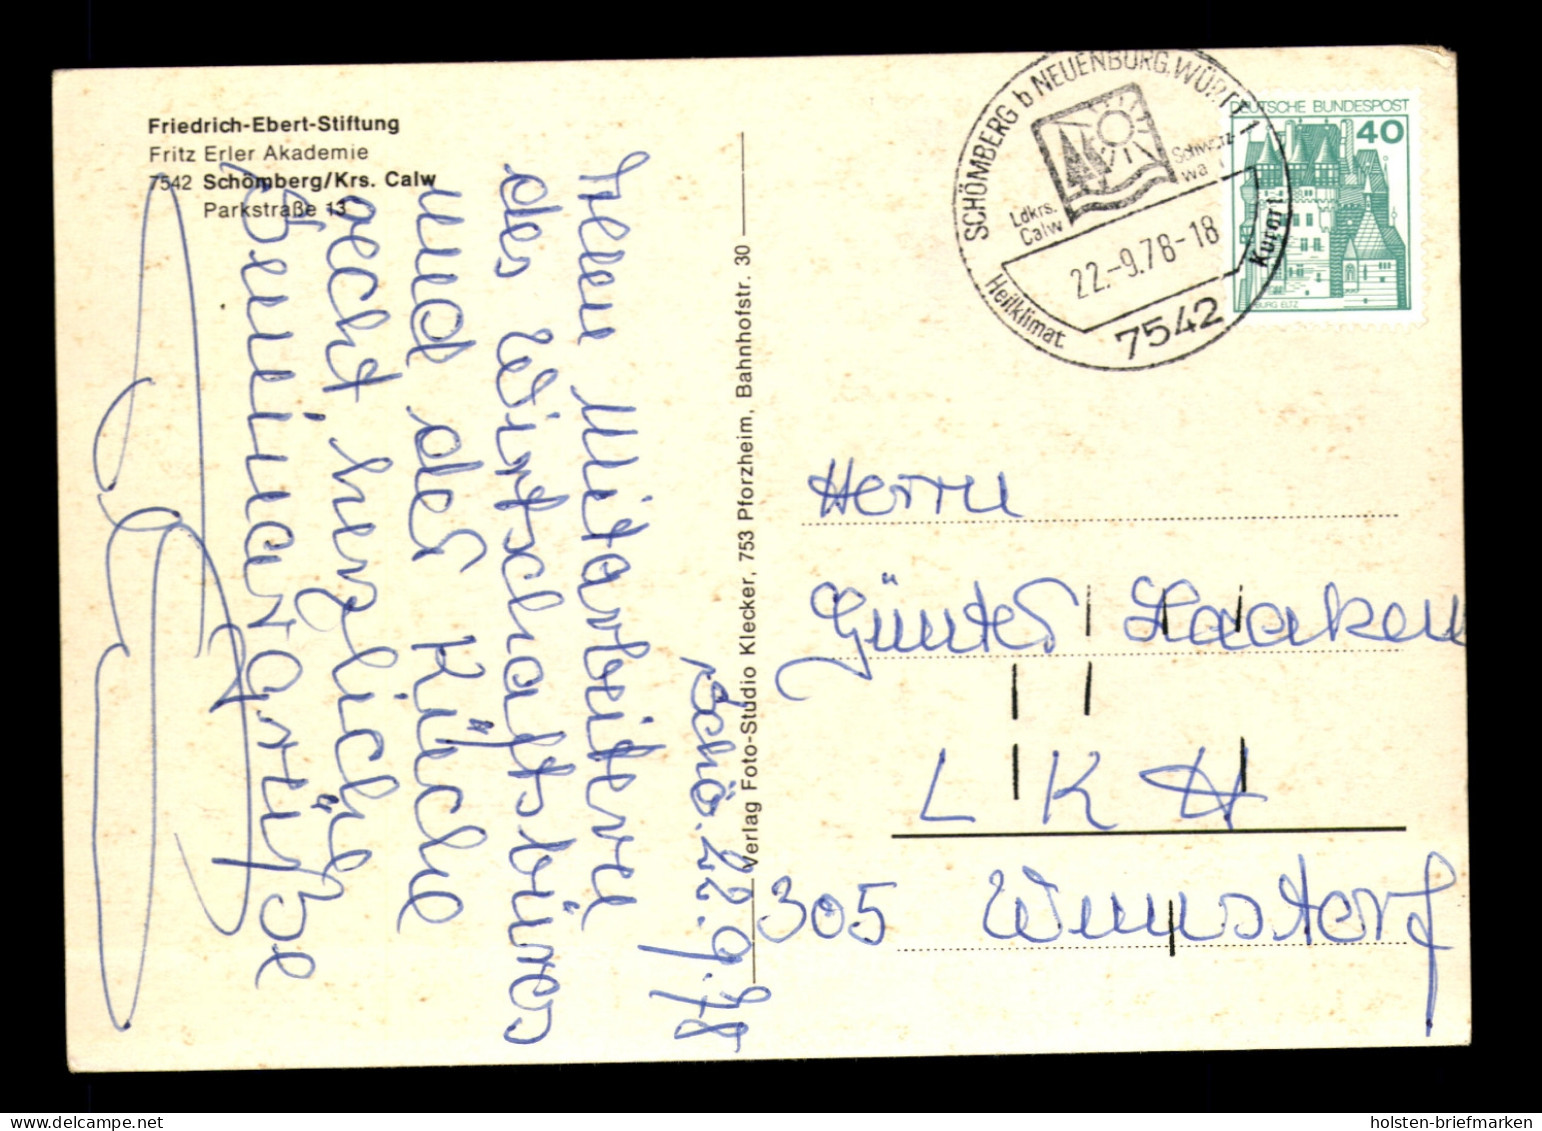 Friedrich-Ebert-Stiftung
Fritz Erler Akademie
7542 Schömberg/Krs. Calw
Parkstraße 13
Schö. 22.9.78
Allen Mitarbeitern
des Wirtschaftsbüros
und der Küche
recht herzliche
Grüße
Verlag Foto-Studio Klecker, 753 Pforzheim, Bahnhofstr. 30
SCHÖMBERG b NEUENBÜRG, WÜRTT 1
Ldkrs. Calw
Schwarzwa
22.-9.78-18
Heilklimat. Kurort
7542
DEUTSCHE BUNDESPOST
40
BURG ELTZ
Herrn
Günter Laaken
LKH
305 Wunstorf
holsten-briefmarken